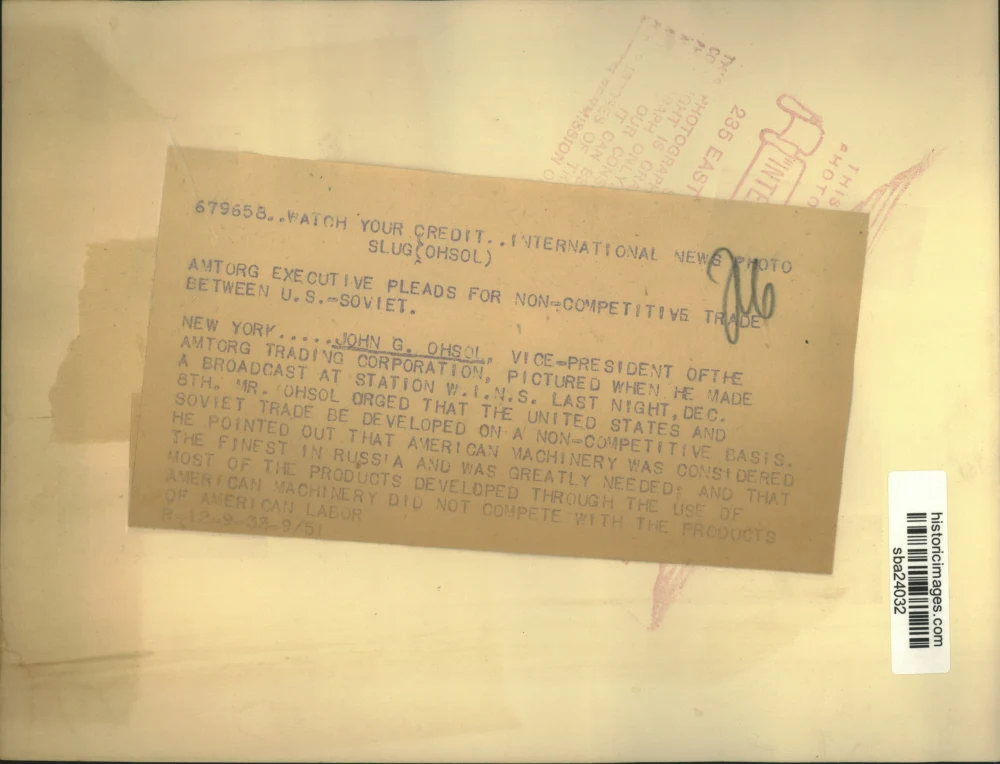 679658..WATCH YOUR CREDIT..INTERNATIONAL NEWS PHOTO
SLUG(OHSOL)
AMTORG EXECUTIVE PLEADS FOR NON-COMPETITIVE TRADE
BETWEEN U.S.-SOVIET.
NEW YORK.....JOHN G. OHSOL, VICE-PRESIDENT OFTHE
AMTORG TRADING CORPORATION, PICTURED WHEN HE MADE
A BROADCAST AT STATION W.I.N.S. LAST NIGHT, DEC.
8TH. MR. OHSOL ORGED THAT THE UNITED STATES AND
SOVIET TRADE BE DEVELOPED ON A NON-COMPETITIVE BASIS.
HE POINTED OUT THAT AMERICAN MACHINERY WAS CONSIDERED
THE FINEST IN RUSSIA AND WAS GREATLY NEEDED; AND THAT
MOST OF THE PRODUCTS DEVELOPED THROUGH THE USE OF
AMERICAN MACHINERY DID NOT COMPETE WITH THE PRODUCTS
OF AMERICAN LABOR
R-12-9-33-9/51
THIS
PHOTO
"INTE
235 EAST
PHOTOGRAPH
historicimages.com
sba24032